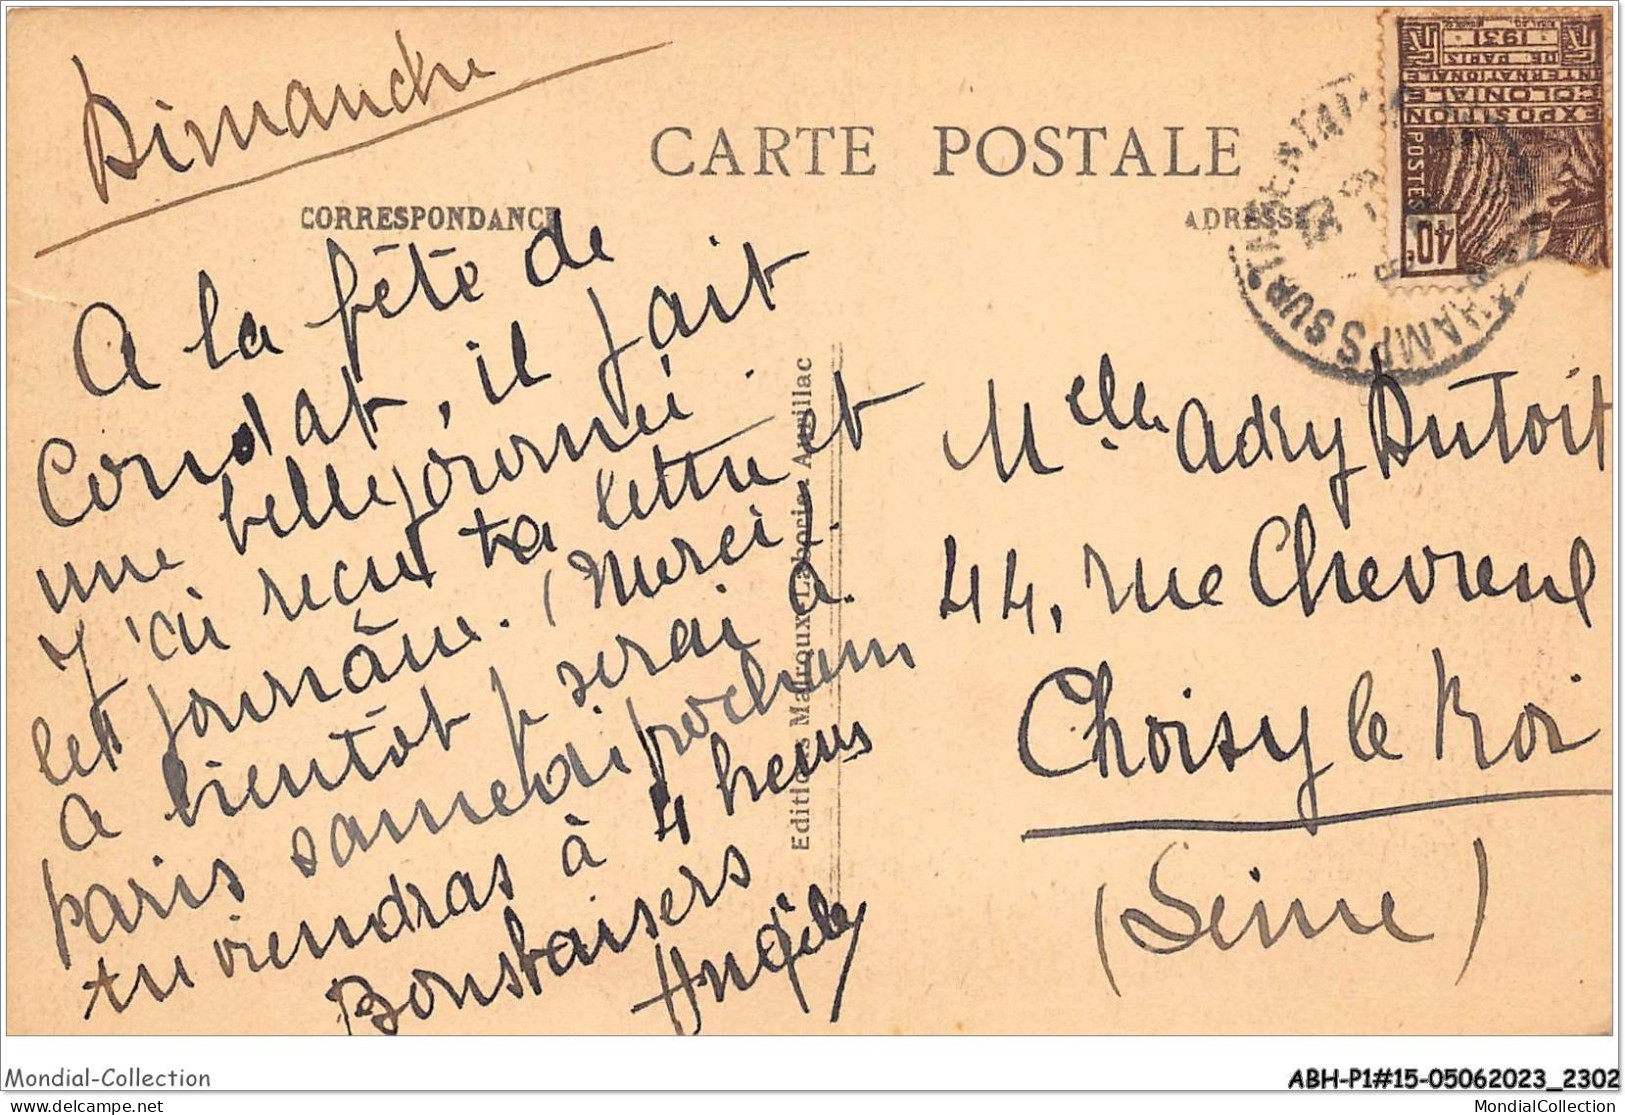 Dimanche
CARTE POSTALE
CORRESPONDANCE
ADRESSE
EXPOSITION
COLONIALE
INTERNATIONALE
DE PARIS
1931
POSTES
40c
CHAMPS SUR
A la fête de
Condat, il fait
une belle journée.
J'ai reçue ta lettre et
les journaux. (Merci).
A bientôt je serai à
Paris samedi prochain
tu viendras à 4 heures
Bons baisers
Angèle
Editions Malroux-Laborie, Aurillac
Melle Adry Dutoit
44, rue Chevreul
Choisy le Roi
(Seine)
Mondial-Collection
ABH-P1#15-05062023_2302
delcampe.net
MondialCollection